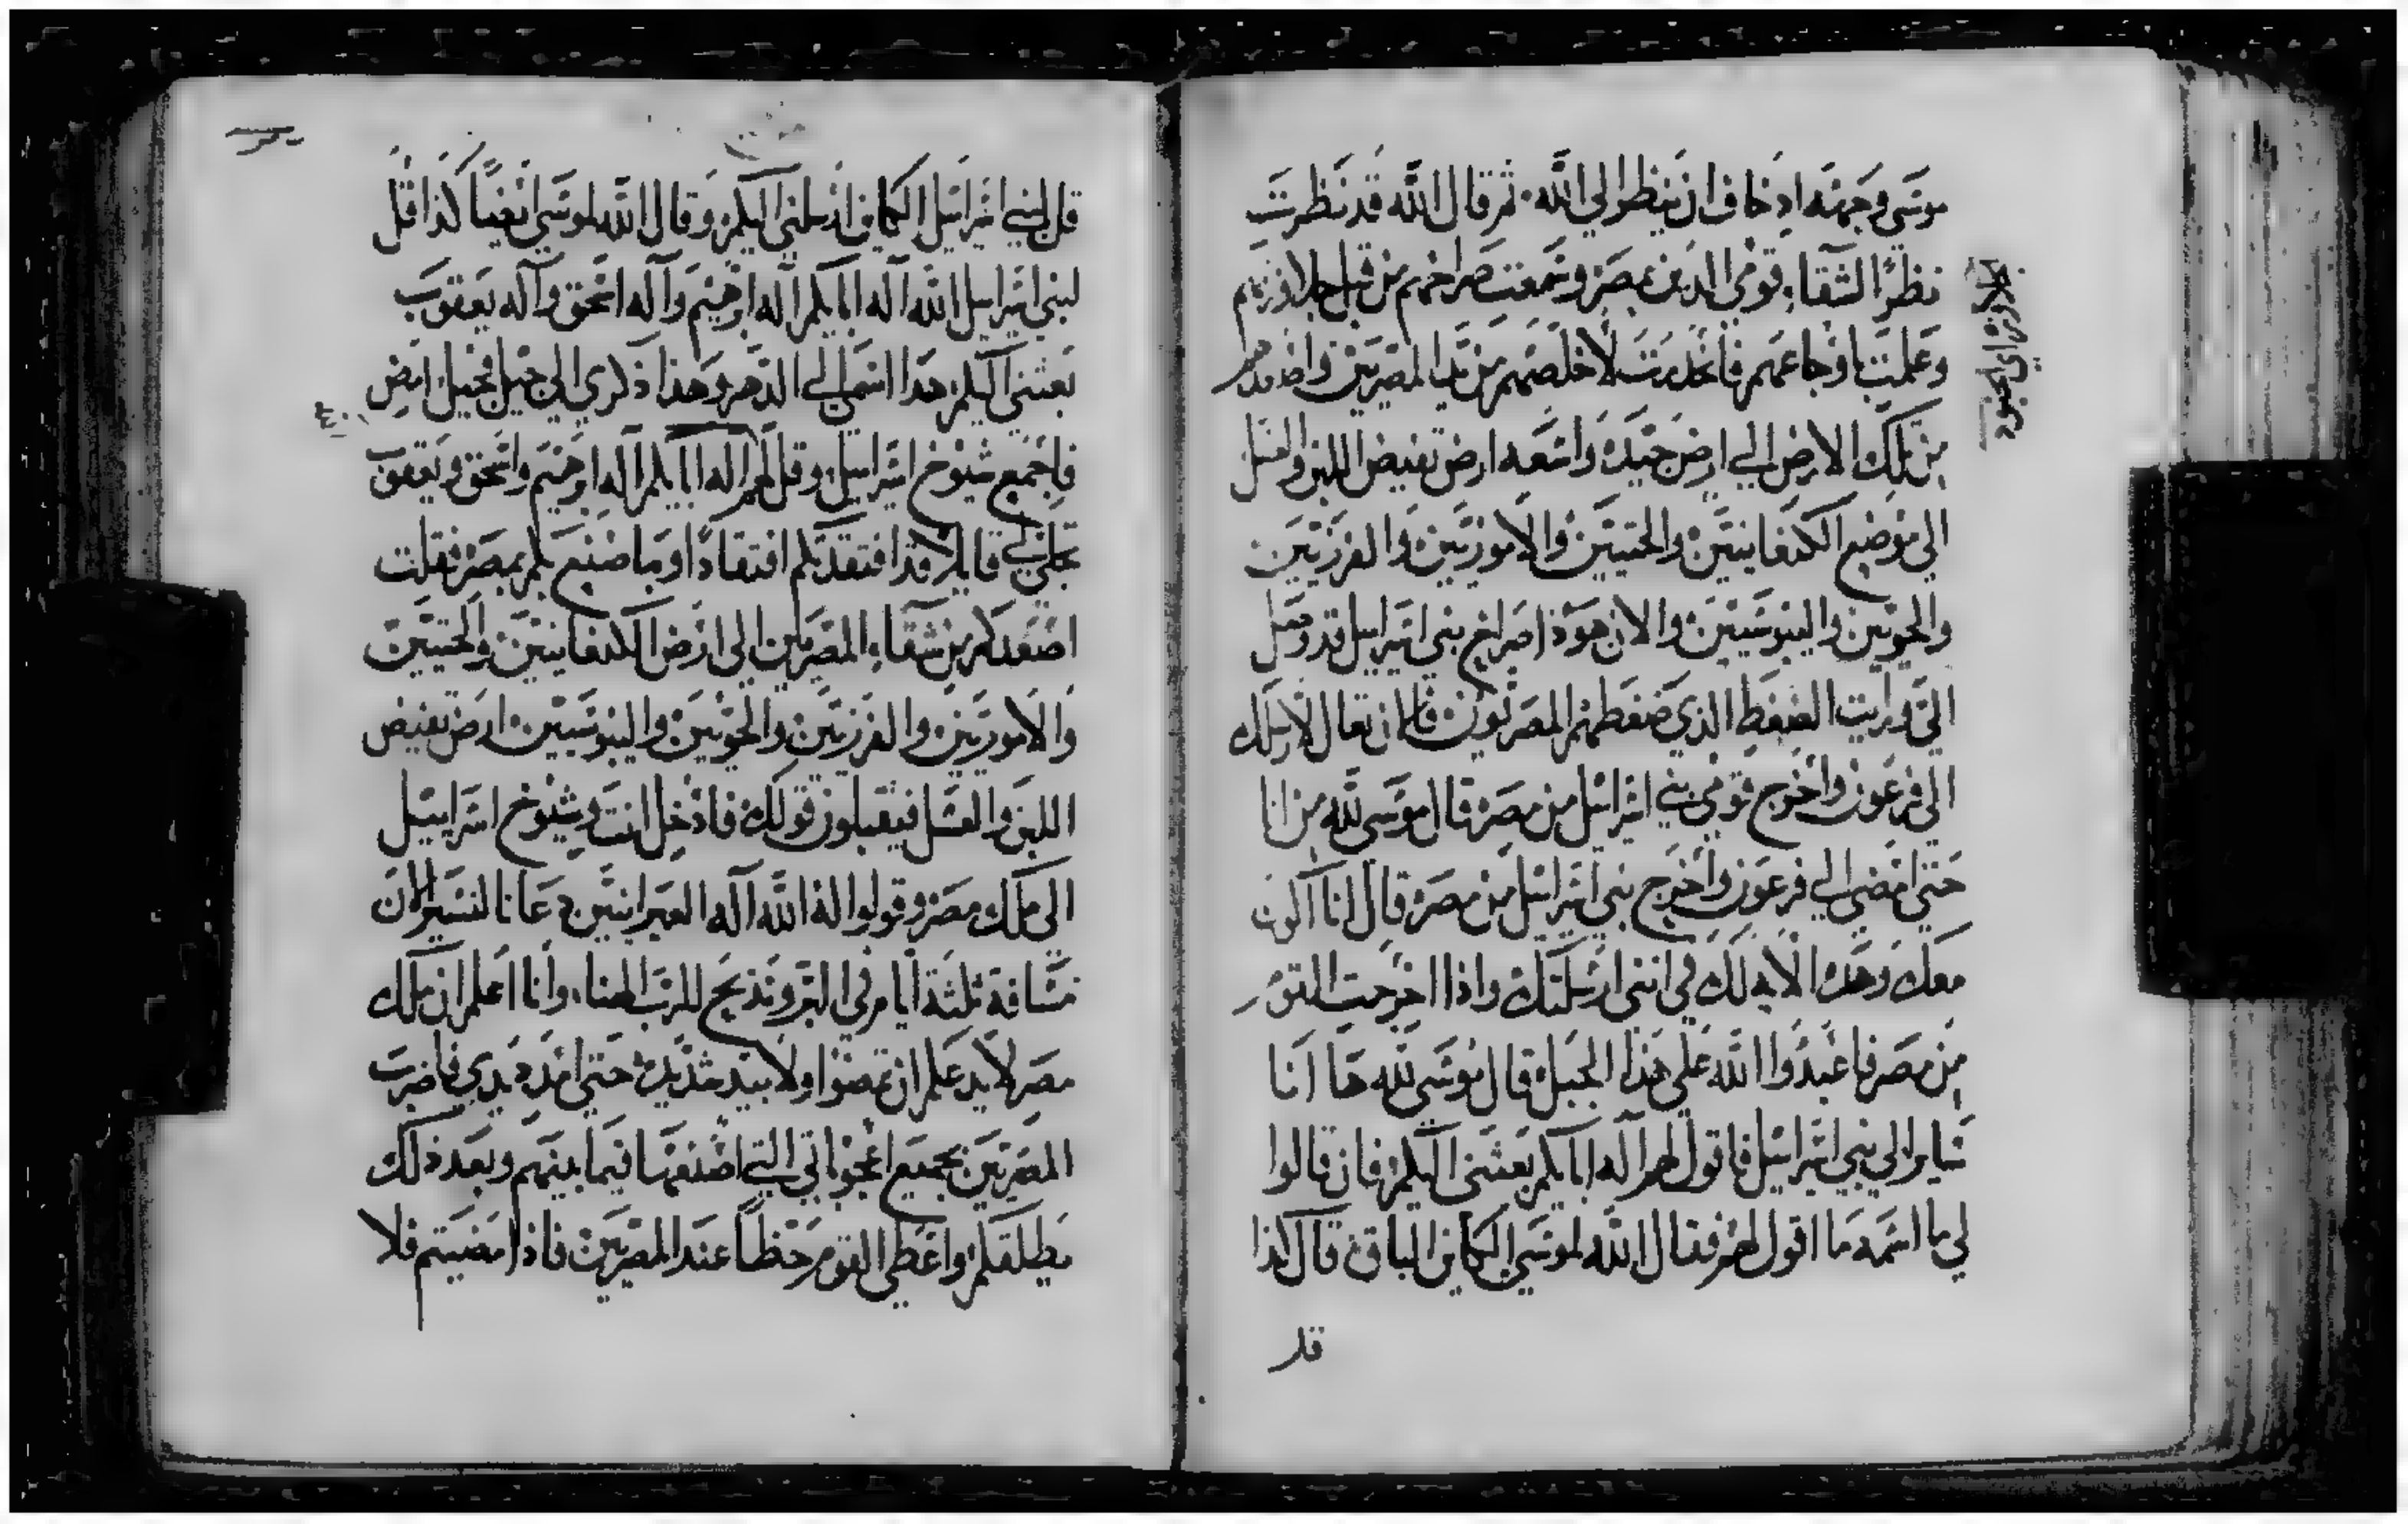 موسى وجهه اذ خاف ان ينظر الي الله ثم قال الله قد نظرت
نظرًا لشقاء قومي الذين بمصر وسمعت صراخهم من قبل جلاوزتهم
وعلمت باوجاعهم فانحدرت لاخلصهم من يد المصريين واصعدهم
من تلك الارض الي ارض جيدة واسعه ارض تفيض اللبن والعسل
الي موضع الكنعانيين والحيثيين والاموريين والفرزيين
والحويين واليبوسيين والان هوذا صراخ بني اسراييل قد وصل
الي ورايت الضغط الذي ضغطهم المصريون فالان تعال لارسلك
الي فرعون واخرج قومي بني اسراييل من مصر قال موسى لله من انا
حتي امضي الي فرعون واخرج بني اسراييل من مصر قال انا اكون
معك وهذه الايه لك في انني ارسلتك واذا اخرجت القوم
من مصر فاعبدوا الله علي هذا الجبل قال موسى لله ها انا
ساير الي بني اسراييل فاقول لهم اله ابايكم بعثني اليكم فان قالوا
لي ما اسمه ما اقول لهم فقال الله لموسي الكاين الباقي قال كذا
قل
جلاوزة اي جنود
قل لبني اسراييل الكاين ارسلني اليكم وقال الله لموسي ايضًا كذا قل
لبني اسراييل الله آله ابايكم آله ابرهيم وآله اسحق وآله يعقوب
بعثني اليكم هذا اسمي الي الدهر وهذا ذكري الي جيل فجيل امض
فاجمع شيوخ اسراييل وقل لهم اله ابايكم آله ابرهيم واسحق ويعقوب
تجلي لي قايلا قد افتقدتكم افتقادًا وما صنع بكم بمصر فقلت
اصعدكم من شقاء المصريين الي ارض الكنعانيين والحيثيين
والاموريين والفرزيين والحويين واليبوسيين ارض تفيض
اللبن والعسل فيقبلون قولك فادخل انت وشيوخ اسراييل
الي ملك مصر وقولوا له الله آله العبرانيين دعانا لنسير الان
مسافة ثلثة ايام في البر ونذبح للرب الهنا وانا اعلم ان ملك
مصر لا يدعكم ان تمضوا ولا بيد شديدة حتي امد يدي فاضرب
المصريين بجميع اعجوباتي التي اصنعها فيما بينهم وبعد ذلك
يطلقكم واعطي القوم حظًا عند المصريين فاذا مضيتم فلا